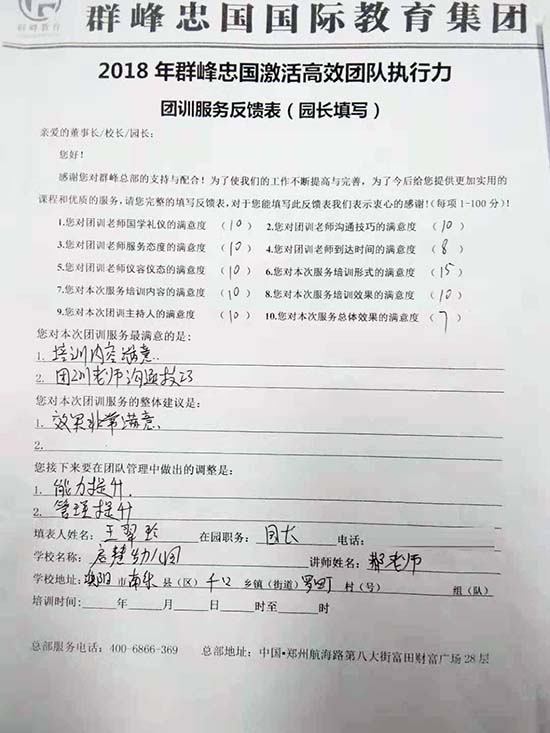 群峰教育
群峰忠国国际教育集团
2018年群峰忠国激活高效团队执行力
团训服务反馈表（园长填写）
亲爱的董事长/校长/园长：
您好！
感谢您对群峰总部的支持与配合！为了使我们的工作不断提高与完善，为了今后给您提供更加实用的
课程和优质的服务，请您完整的填写反馈表，对于您能填写此反馈表我们表示衷心的感谢！(每项1-100分)！
1.您对团训老师国学礼仪的满意度 （10） 2.您对团训老师沟通技巧的满意度 （10）
3.您对团训老师服务态度的满意度 （10） 4.您对团训老师到达时间的满意度 （8）
5.您对团训老师仪容仪态的满意度 （10） 6.您对本次服务培训形式的满意度 （15）
7.您对本次服务培训内容的满意度 （10） 8.您对本次服务培训效果的满意度 （10）
9.您对本次团训主持人的满意度 （10） 10.您对本次服务总体效果的满意度 （7）
您对本次团训服务最满意的是：
1. 培训内容满意.
2. 团训老师沟通技巧
您对本次团训服务的整体建议是：
1. 效果非常满意.
2.
您接下来要在团队管理中做出的调整是：
1. 能力提升.
2. 管理提升
填表人姓名：王翠玲 在园职务：园长 电话：
学校名称：启慧幼儿园 讲师姓名：郝老师
学校地址：濮阳市南乐县（区）千口乡镇（街道）罗町村（号） 组（队）
培训时间： 年 月 日 时至 时
总部服务电话：400-6866-369 总部地址：中国·郑州航海路第八大街富田财富广场28层